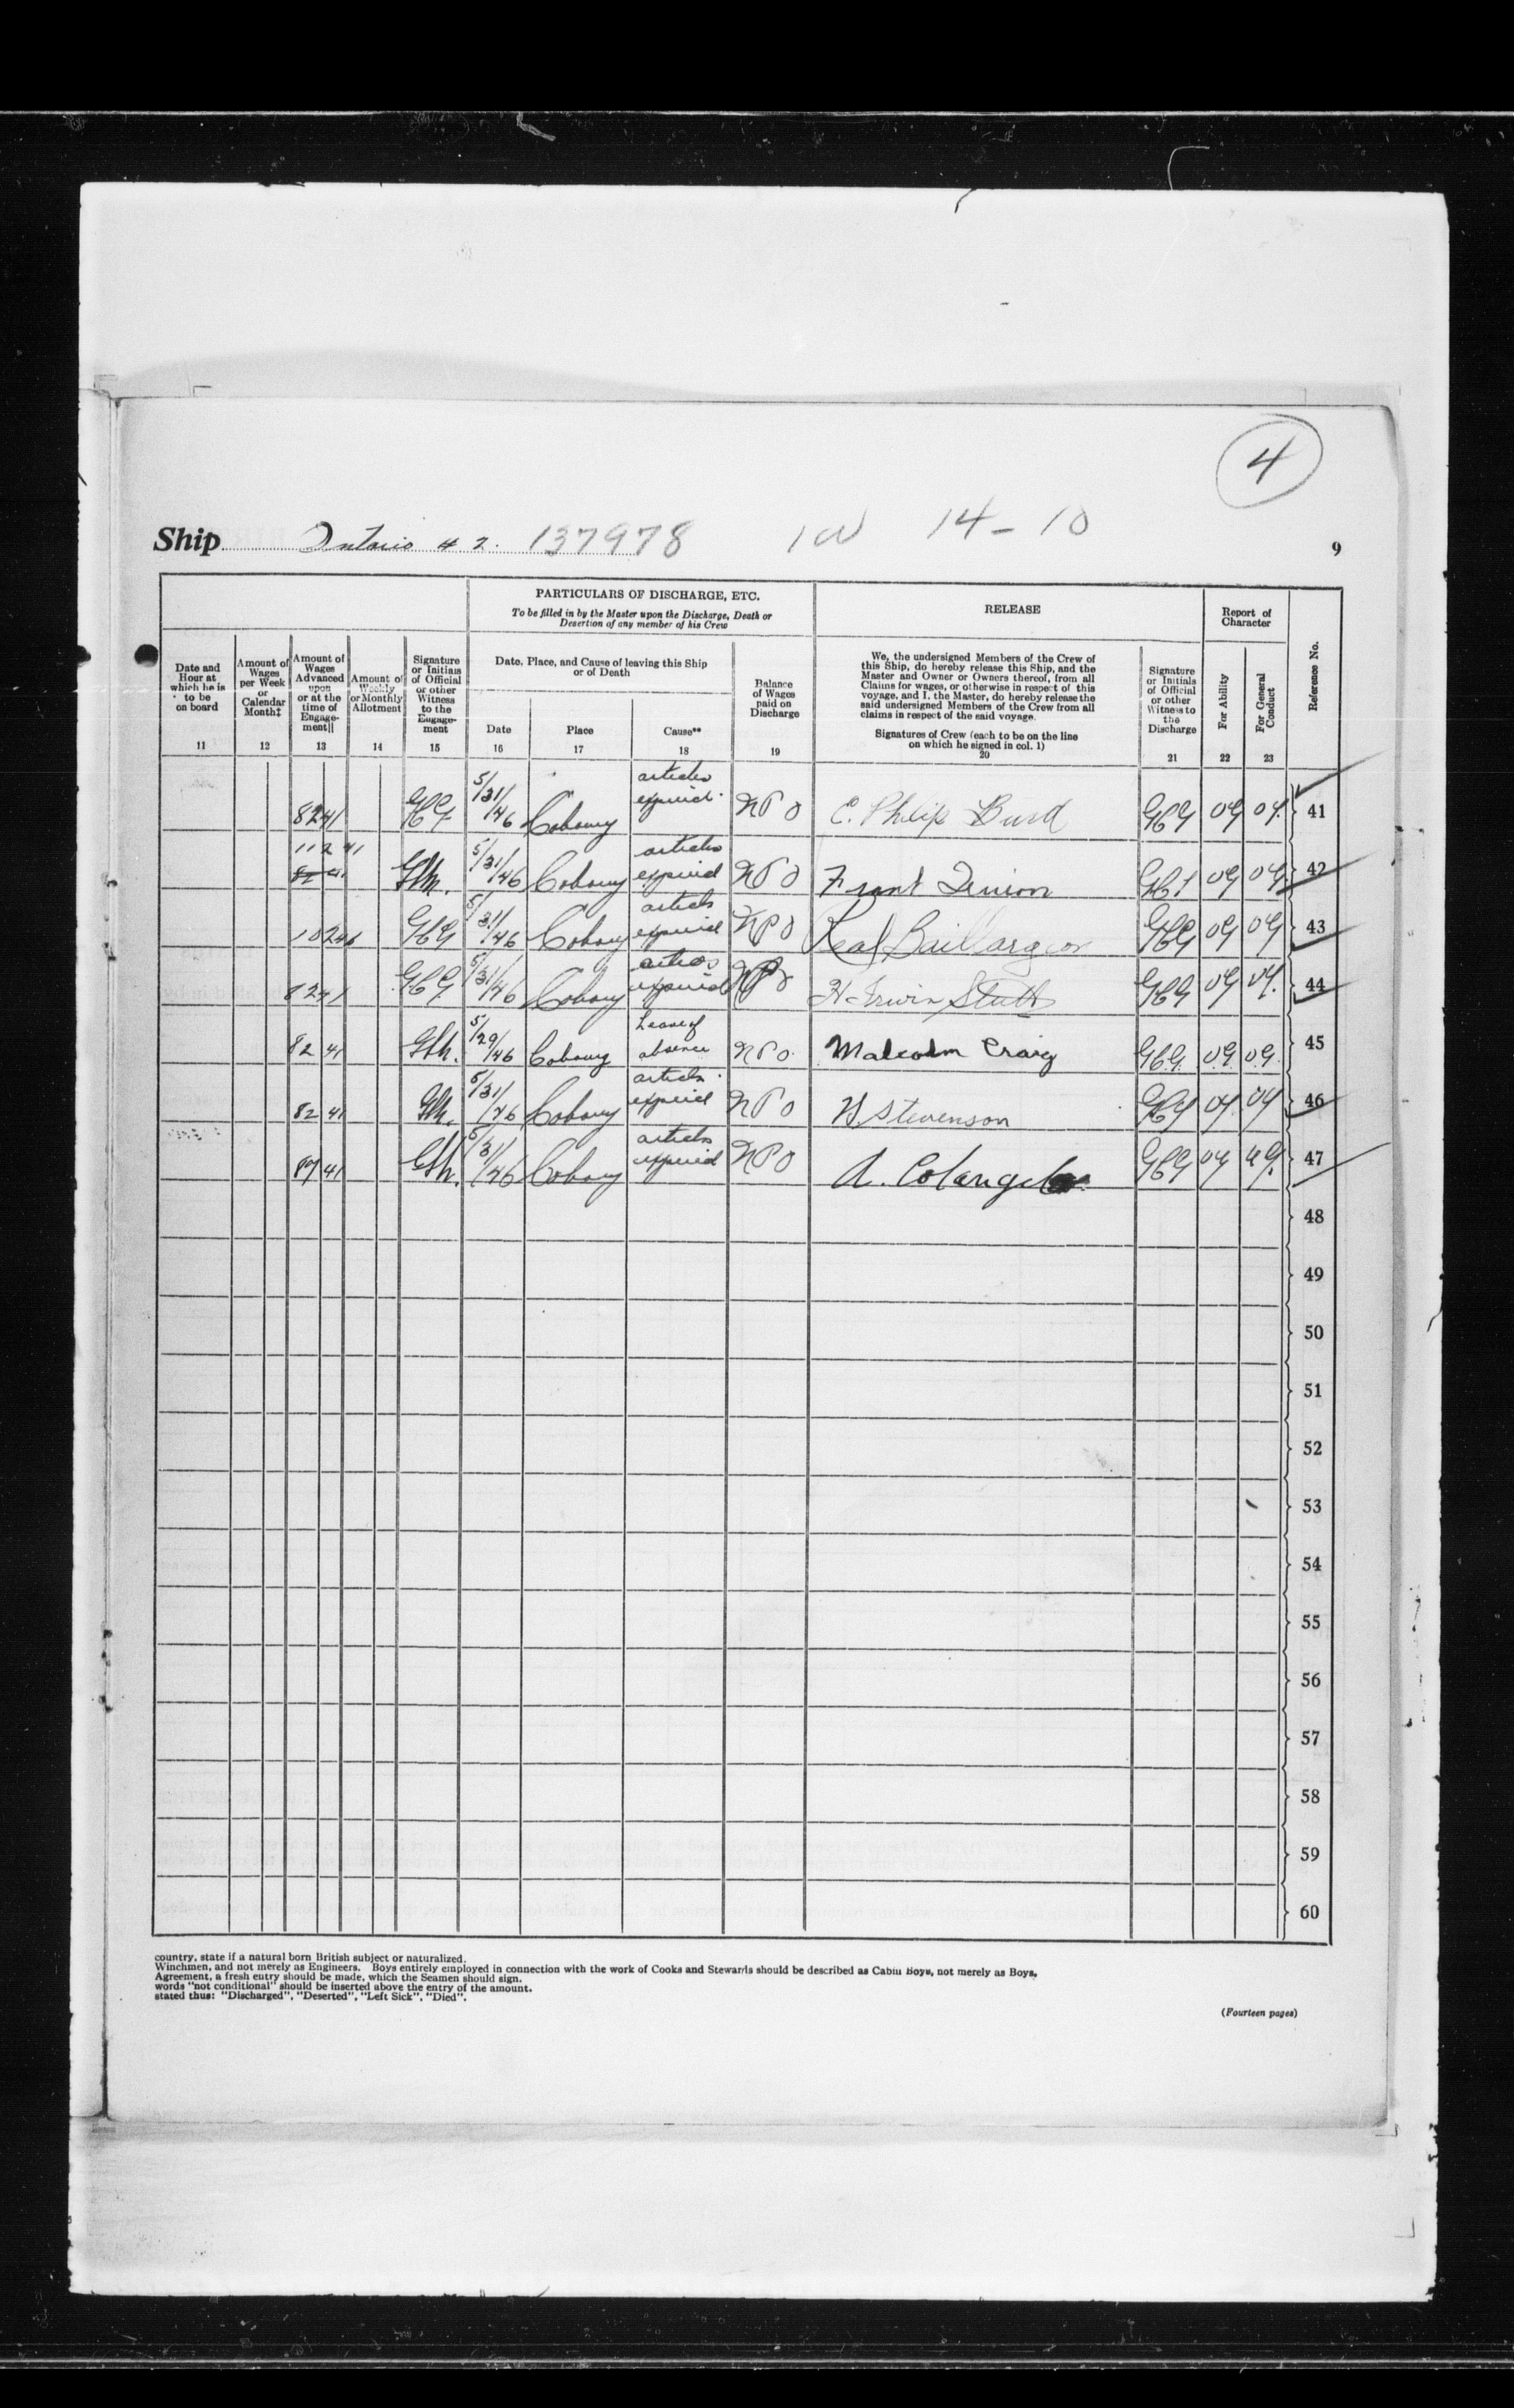 4
Ship Ontario # 2. 137978 14-10
9
PARTICULARS OF DISCHARGE, ETC.
To be filled in by the Master upon the Discharge, Death or
Desertion of any member of his Crew
RELEASE
Report of
Character
Reference No.
Date and
Hour at
which he is
to be
on board
11
Amount of
Wages
per Week
or
Calendar
Month‡
12
Amount of
Wages
Advanced
upon
or at the
time of
Engage-
ment||
13
Amount of
Weekly
or Monthly
Allotment
14
Signature
or Initials
of Official
or other
Witness
to the
Engage-
ment
15
Date, Place, and Cause of leaving this Ship
or of Death
Date
16
Place
17
Cause**
18
Balance
of Wages
paid on
Discharge
19
We, the undersigned Members of the Crew of
this Ship, do hereby release this Ship, and the
Master and Owner or Owners thereof, from all
Claims for wages, or otherwise in respect of this
voyage, and I, the Master, do hereby release the
said undersigned Members of the Crew from all
claims in respect of the said voyage.
Signatures of Crew (each to be on the line
on which he signed in col. 1)
20
Signature
or Initials
of Official
or other
Witness to
the
Discharge
21
For Ability
22
For General
Conduct
23
82 41 5/31/46 Cobourg articles expired C. Philip 41
112 41
82 41 5/31/46 Cobourg articles expired Frank 42
5/31/46 Cobourg articles expired Real Baillargeon 43
82 41 5/31/46 Cobourg articles expired H. Irwin Stutt 44
82 41 5/29/46 Cobourg Leave of absence Malcolm Craig 45
82 41 5/31/46 Cobourg articles expired H Stevenson 46
87 41 5/31/46 Cobourg articles expired A. Colangelo 47
48
49
50
51
52
53
54
55
56
57
58
59
60
country, state if a natural born British subject or naturalized.
Winchmen, and not merely as Engineers. Boys entirely employed in connection with the work of Cooks and Stewards should be described as Cabin Boys, not merely as Boys.
Agreement, a fresh entry should be made, which the Seamen should sign.
words "not conditional" should be inserted above the entry of the amount.
stated thus: "Discharged", "Deserted", "Left Sick", "Died".
(Fourteen pages)